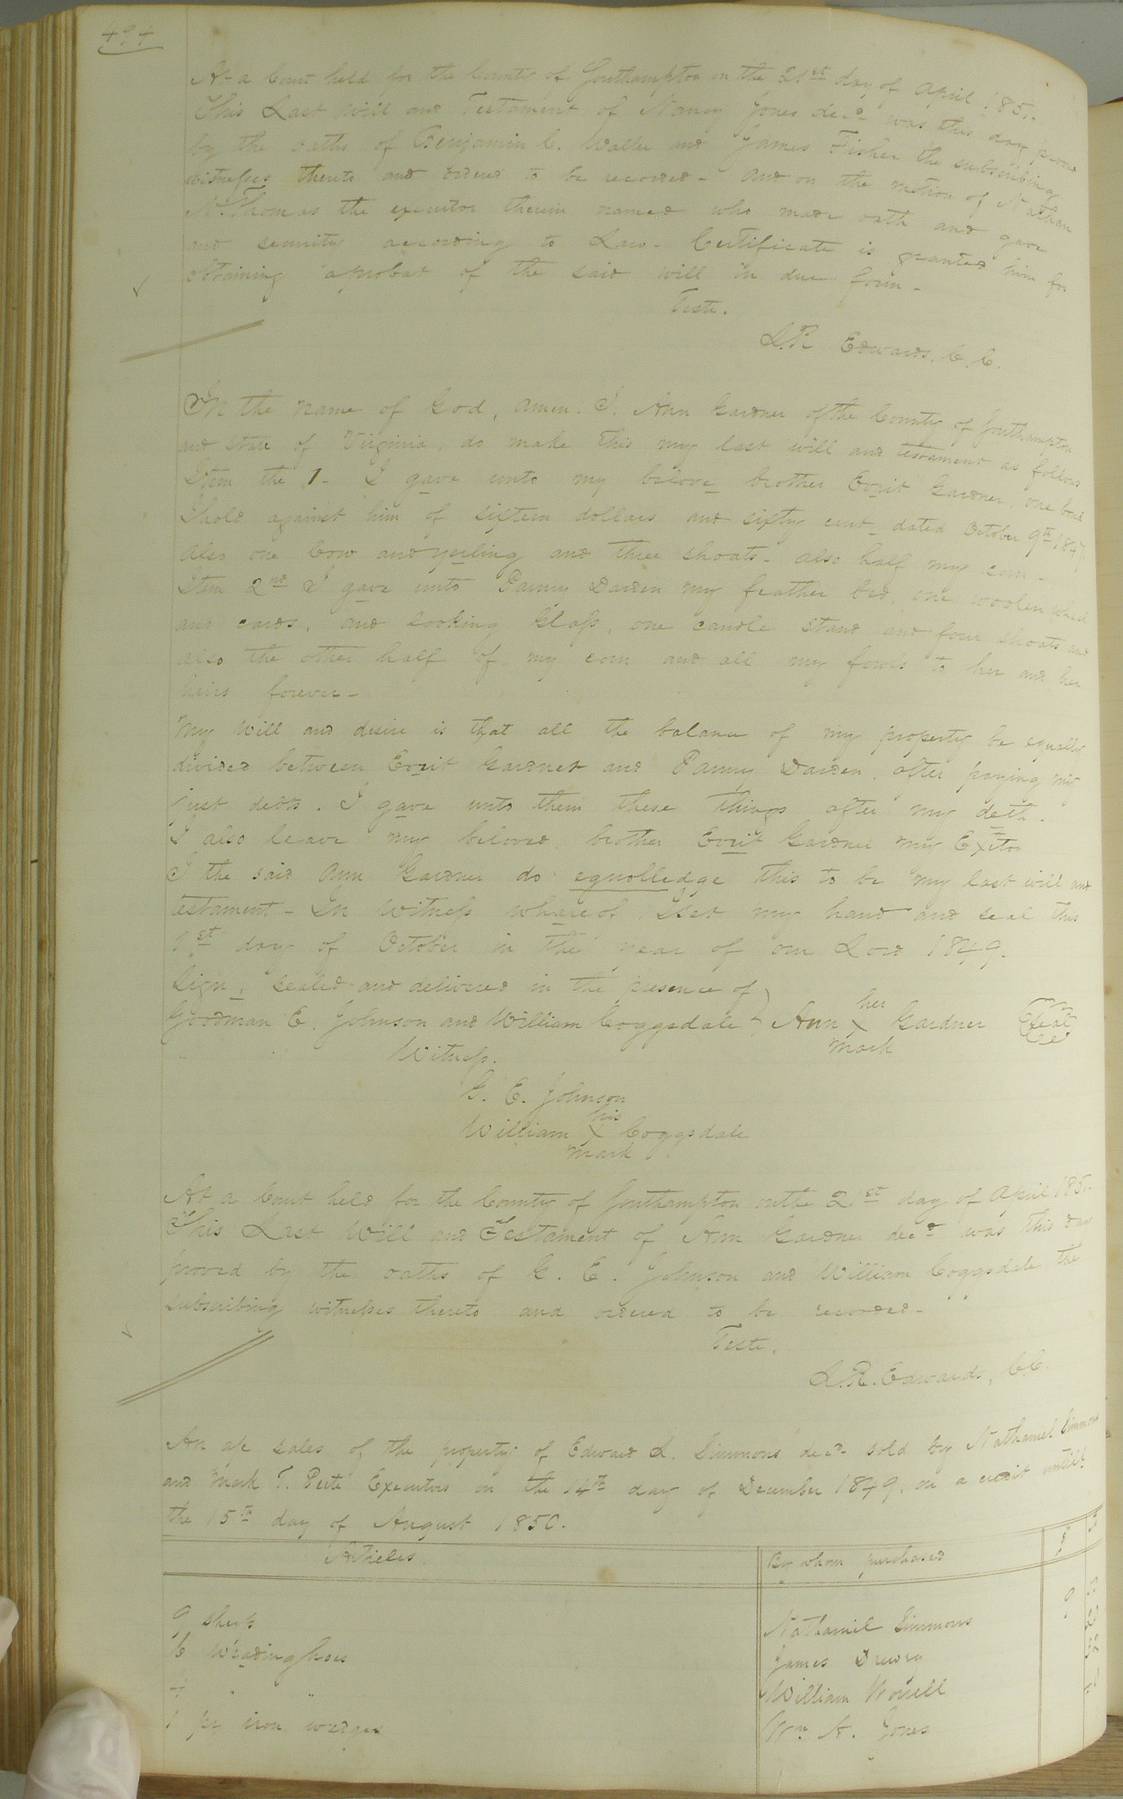 At a Court held for the County of Southampton on the 21st day of April 185
This Last Will and Testament of Nancy Jones decd was this day proved
by the oaths of Benjamin C. Waller and James Fisher the subscribing
witnesses thereto and ordered to be recorded - And on the motion of Nathan
N. Thomas the executor therein named who made oath and gave
and security according to Law - Certificate is granted him for
obtaining a probat of the said will in due form -
Teste.
L.R Edwards, C.C.
In the name of God, amen. I. Ann Gardner of the County of Southampton
and State of Virginia, do make this my last will and testament as follows
Item the 1 - I gave unto my belove brother Evrit Gardner, one bond
I hold against him of sixteen dollars and sixfty cent dated October 9th 1847
also one Cow and yerling and three shoats - also half my corn -
Item 2nd I gave unto Panny Darden my feather bed, one woolen wheel
and cards, and Looking Glass, one candle stand and four shoats and
also the other half of my corn and all my fowls to her and her
heirs forever -
My will and desire is that all the balance of my property be equally
divided between Evrit Gardner and Panny Darden, after paying my
just debts. I gave unto them these things after my deth.
I also leave my beloved brother Evrit Gardner my Exetor
I the said Ann Gardner do eqnolledge this to be my last will and
testament - In Witness whareof I set my hand and seal this
1st day of October in the year of our Lord 1849.
Sign, sealed and delivered in the presence of
Goodman E. Johnson and William Coggsdale } Ann her X mark Gardner Seal
Witness.
G. E. Johnson
William his X mark Coggsdale
At a Court held for the County of Southampton on the 21st day of April 185
This Last Will and Testament of Ann Gardner decd was this day
proved by the oaths of G. E. Johnson and William Coggsdale the
subscribing witnesses thereto and ordered to be recorded -
Teste.
L.R. Edwards, C.C.
An a/c sales of the property of Edward L. Simmons decd sold by Nathaniel Simmons
and Mark T. Pete Executors on the 14th day of December 1849. on a credit untill
the 15th day of August 1850.
Articles. By whom purchased $
9 sheep Nathaniel Simmons 9
6 Weading hoes James Drewry
4 " " William Worrell
1 pr iron wedges Wm A. Jones